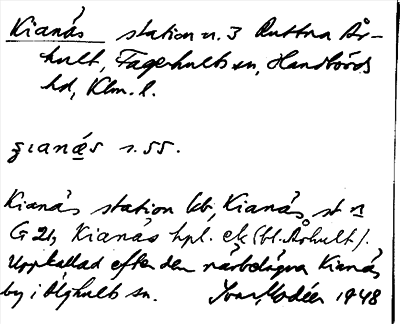 Kianäs station u. 3 Ruttna År-
hult, Fagerhults sn, Handbörds
hd, Klm. l.
ʒıanǽs s. 55.
Kianäs station kb, Kianäs st
G 21, Kianäs hpl. ek (bl. Århult).
Uppkallad efter den närbelägna Kianäs
by i Älghults sn. Ivar Modéer 1948